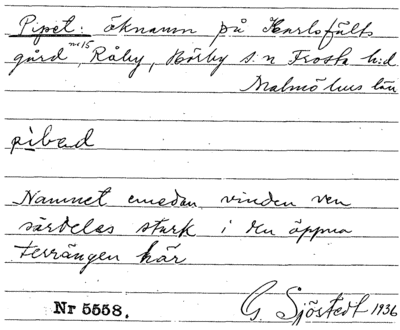 Pipet: öknamn på Karlsfälts
gård nr 15, Råby, Hörby s:n Frosta h:d
Malmöhus län
pibad
Namnet emedan vinden ven
särdeles stark i den öppna
terrängen här
Nr 5558. G Sjöstedt 1936